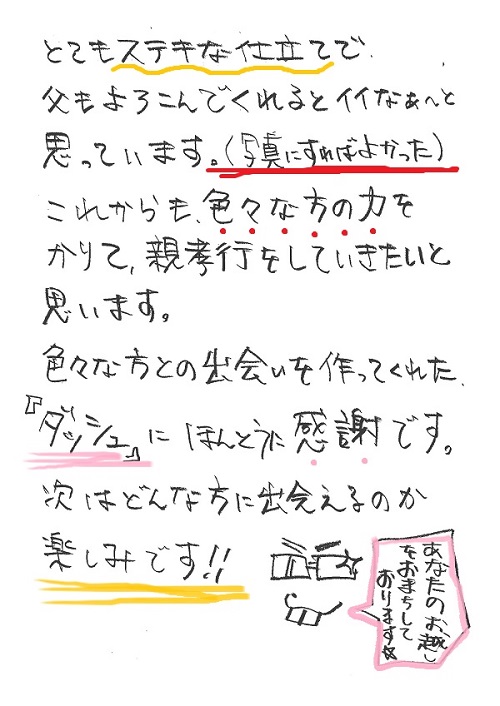 とてもステキな仕立てで
父もよろこんでくれるとイイなぁ〜と
思っています。(写真にすればよかった)
これからも、色々な方の力を
かりて、親孝行をしていきたいと
思います。
色々な方との出会いを作ってくれた、
『ダッシュ』にほんとうに感謝です。
次はどんな方に出会えるのか
楽しみです!!
あなたのお越し
をおまちして
おります☆